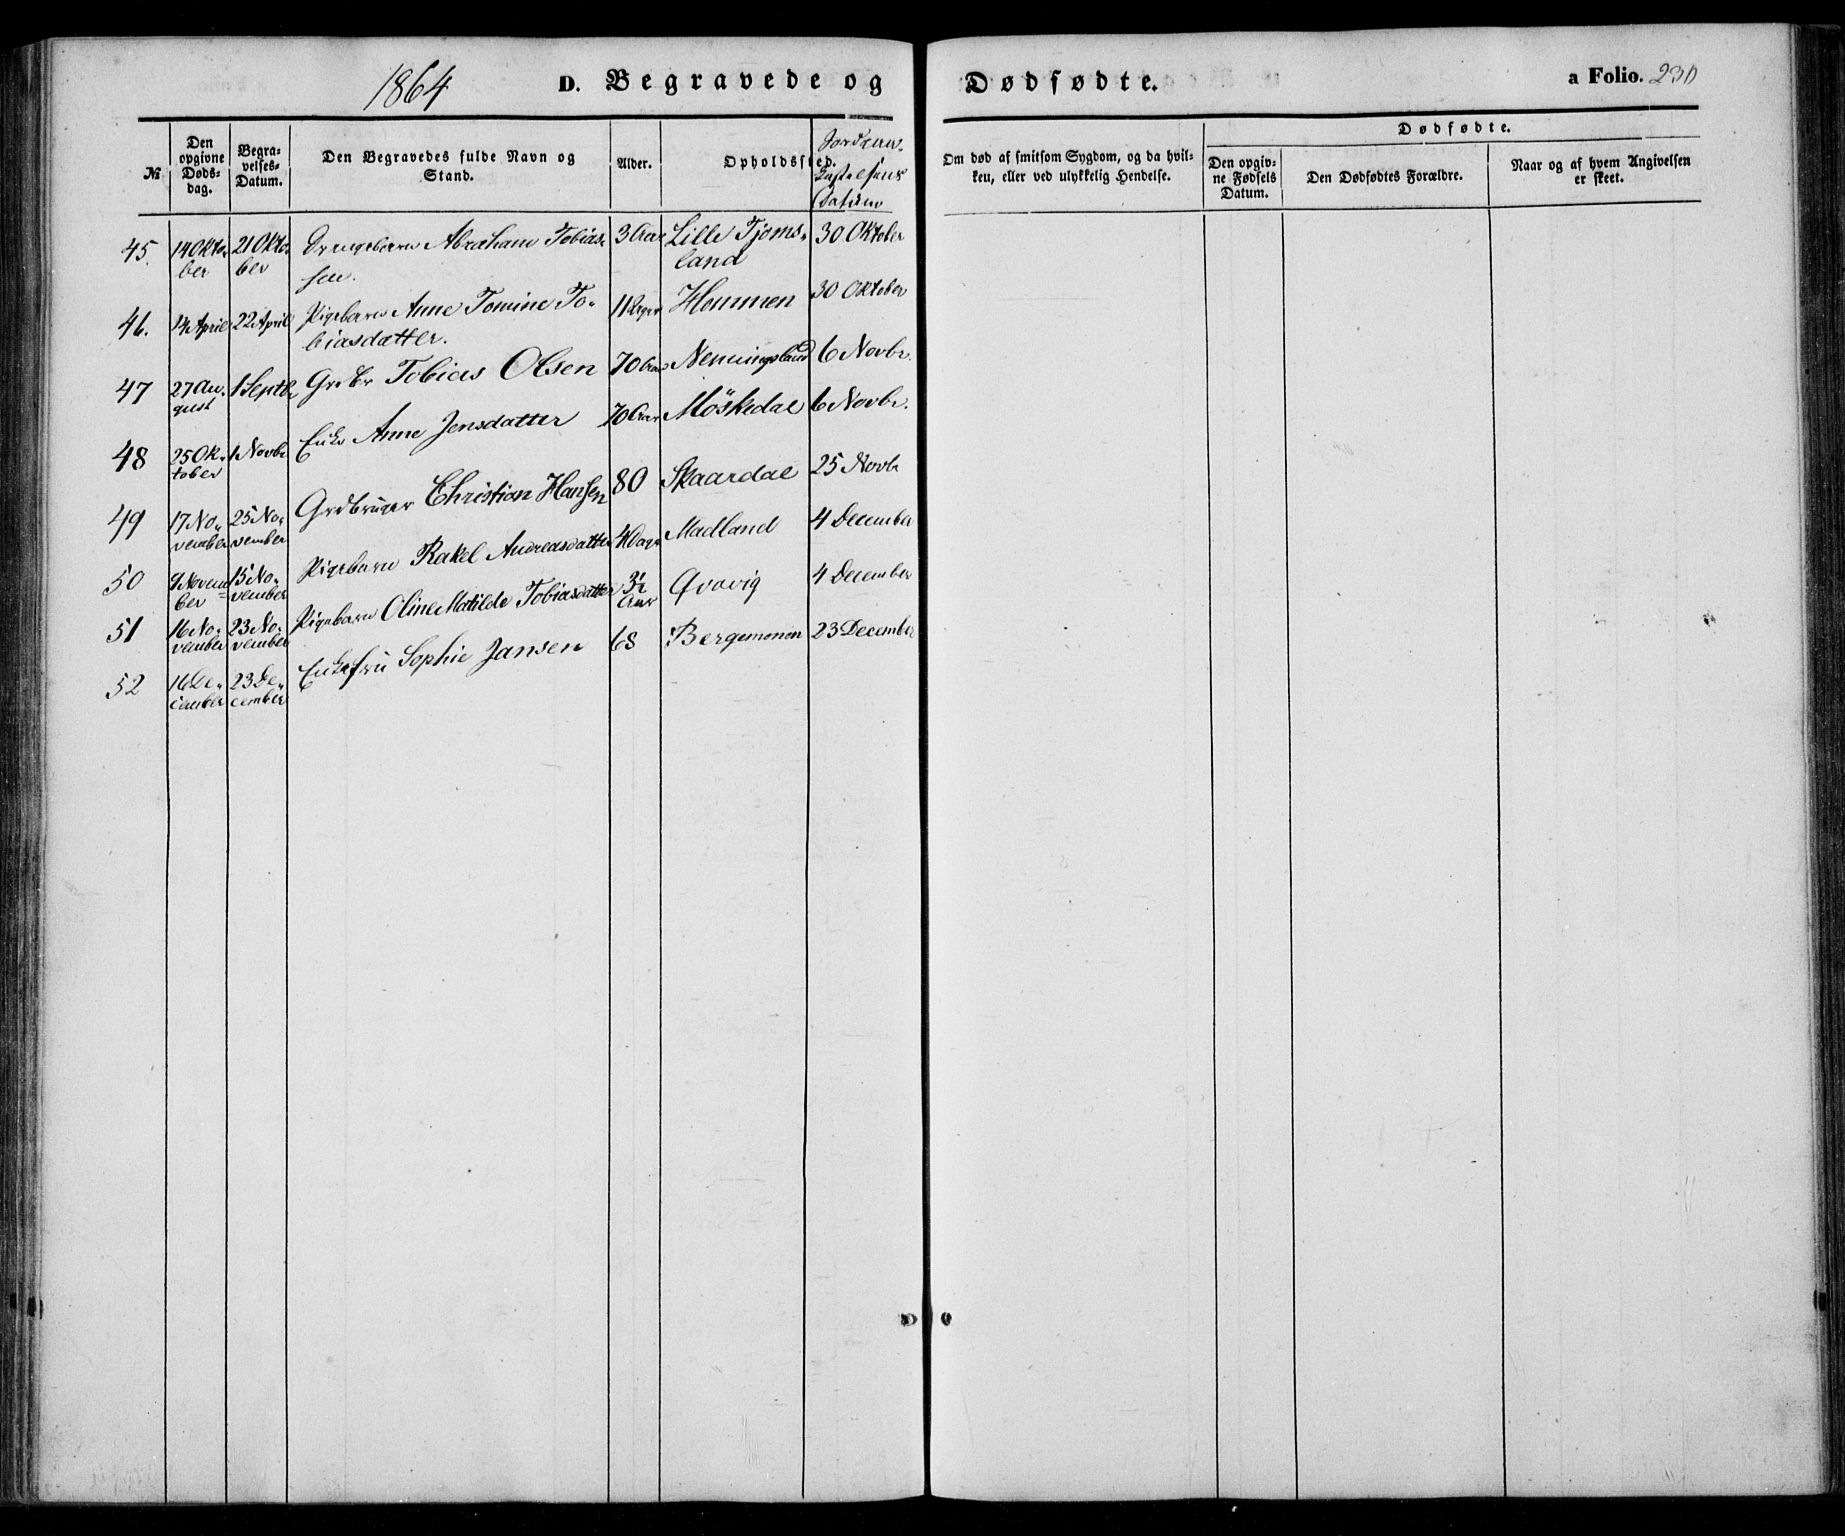 1864
D. Begravede og Dødfødte.
a Folio. 230
№
Den opgivne Døds-dag.
Begra-velses-Datum.
Den Begravedes fulde Navn og Stand.
Alder.
Opholdssted.
Datum
Om død af smitsom Sygdom, og da hvil-
ken, eller ved ulykkelig Hendelse.
Dødfødte.
Den opgiv-ne Fødsels Datum.
Den Dødfødtes Forældre.
Naar og af hvem Angivelsen er skeet.
45. 14 Okto-ber 21 Okto-ber Drengebarn Abraham Tobias-sen. 3 Aar Lille Tjoms-land 30 Oktober
46. 14 April 22 April Pigebarn Anne Tomine To-biasdatter. 11 Uger Hommen 30 Oktober
47 27 Au-gust 1 Septb Grdbr Tobias Olsen 70 Aar 6 Novbr.
48 25 Ok-tober 1 Novbr Enke Anne Jensdatter 70 Aar Möskedal 6 Novbr.
49 17 No-vember 25 No-vember Grdbruger Christian Hansen 80 Skaardal 25 Novb
50 9 Novem-ber 15 No-vember Pigebarn Rakel Andreasdatter Dage Madland 4 December
51 16 No-vember 23 No-vember Pigebarn Oline Matilde Tobiasdatter 3½ Aar Qvavig 4 December
52 16 De-cember 23 De-cember Enkefru Sophie Jansen 68 Bergemonen 23 December